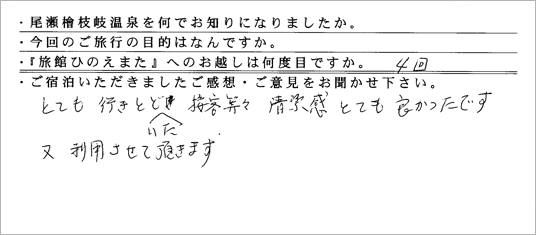 ・尾瀬檜枝岐温泉を何でお知りになりましたか。
・今回のご旅行の目的はなんですか。
・『旅館ひのえまた』へのお越しは何度目ですか。 4回
・ご宿泊いただきましたご感想・ご意見をお聞かせ下さい。
とても 行きとど 接客等々 清潔感 とても 良かったです
いた
又 利用させて頂きます